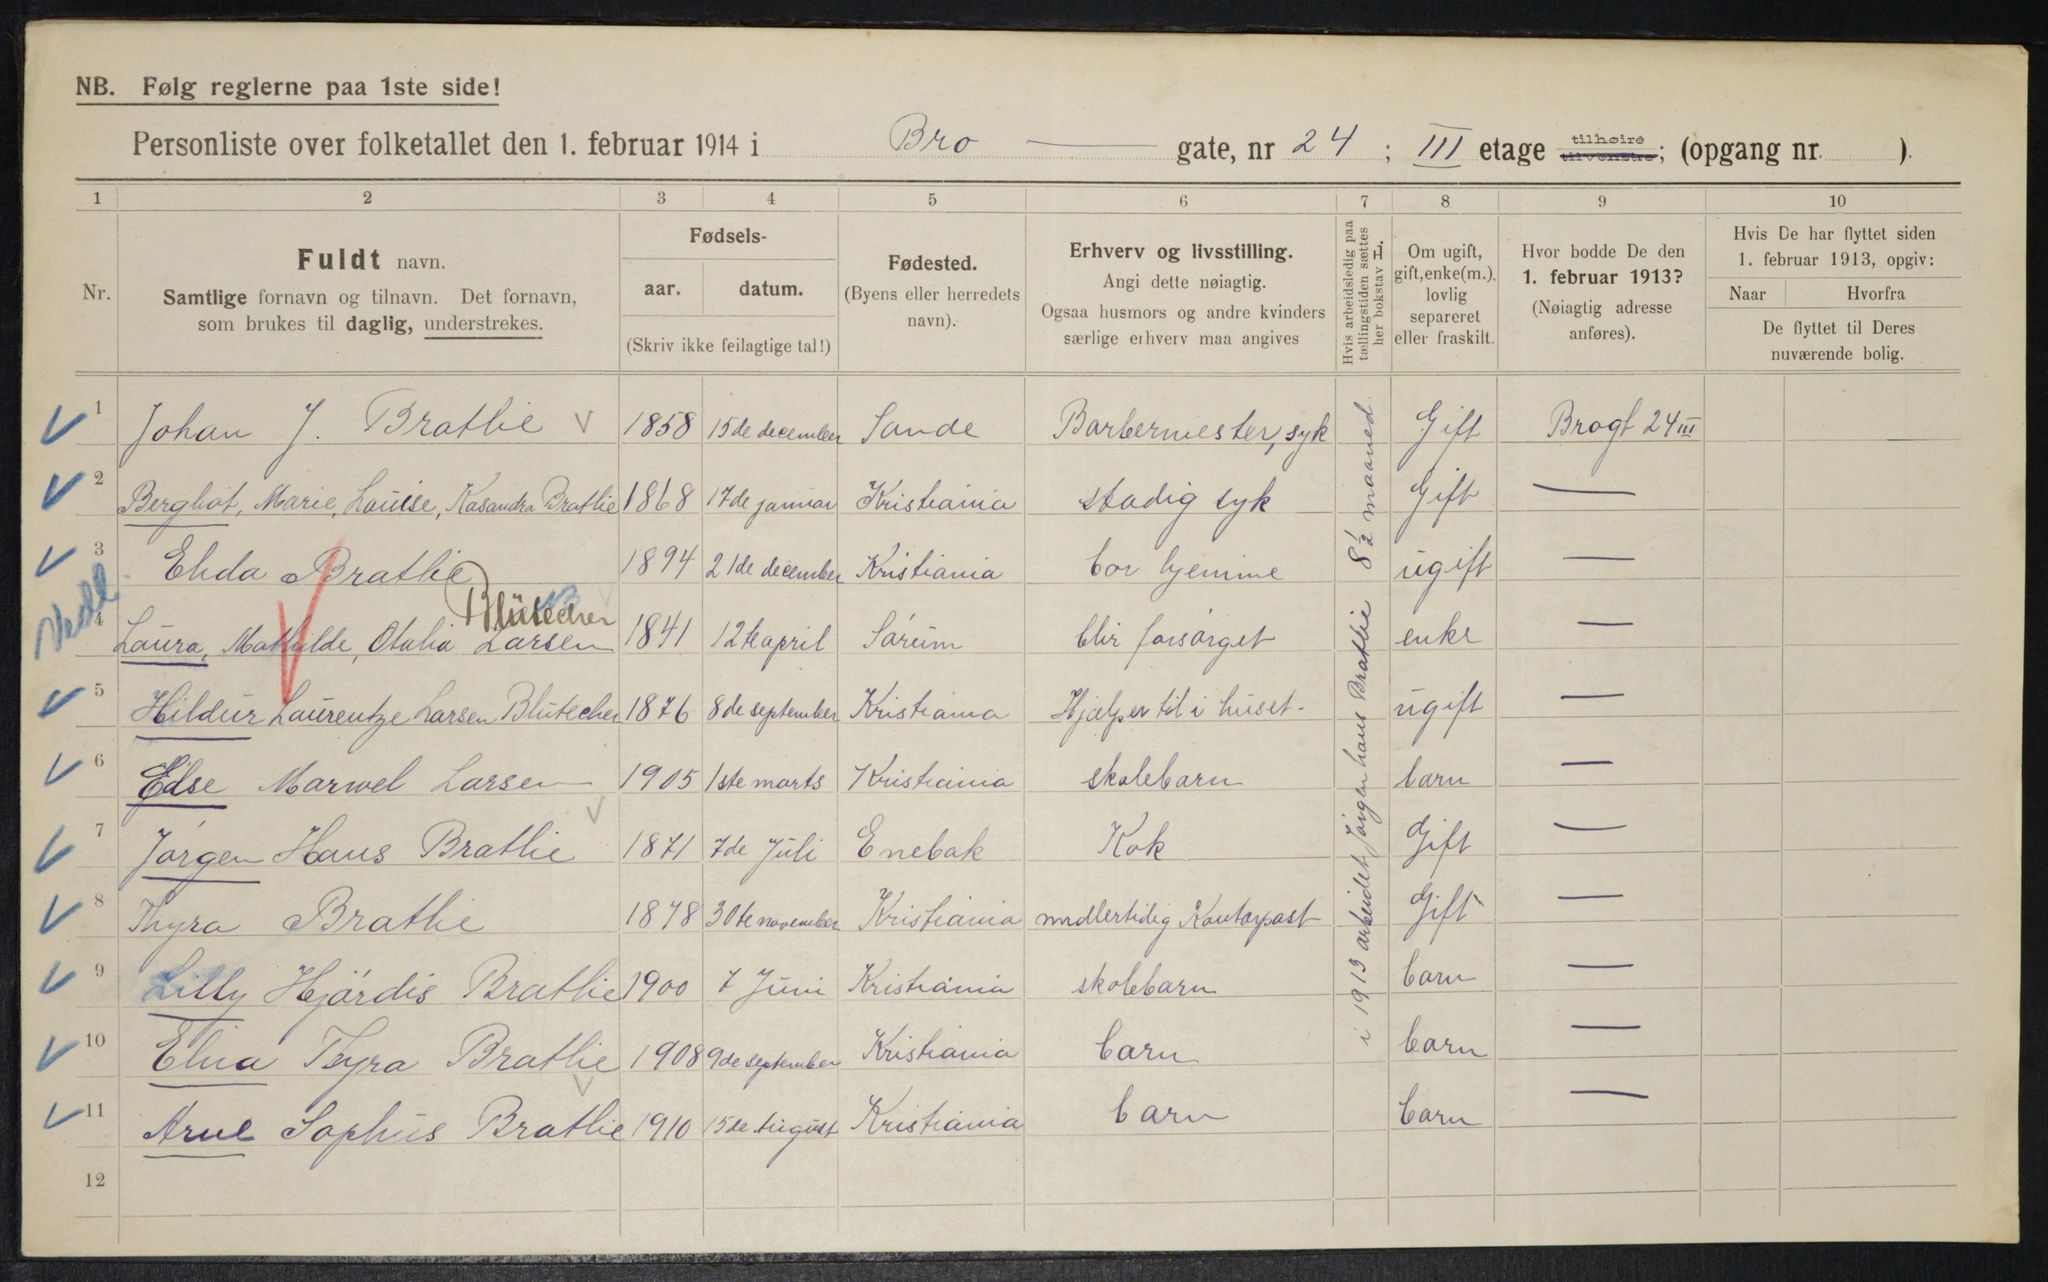 NB. Følg reglerne paa 1ste side!
Personliste over folketallet den 1. februar 1914 i Bro gate, nr 24 ; III etage tilhøire tilvenstre; (opgang nr. ).
1 2 3 4 5 6 7 8 9 10
Nr.
Fuldt navn.
Samtlige fornavn og tilnavn. Det fornavn,
som brukes til daglig, understrekes.
Fødsels-
aar. datum.
(Skriv ikke feilagtige tal!)
Fødested.
(Byens eller herredets
navn).
Erhverv og livsstilling.
Angi dette nøiagtig.
Ogsaa husmors og andre kvinders
særlige erhverv maa angives
Hvis arbeidsledig paa
tællingstiden sættes
her bokstav L.
Om ugift,
gift, enke(m.),
lovlig
separeret
eller fraskilt.
Hvor bodde De den
1. februar 1913?
(Nøiagtig adresse
anføres).
Hvis De har flyttet siden
1. februar 1913, opgiv:
Naar Hvorfra
De flyttet til Deres
nuværende bolig.
1 Johan J. Bratlie 1858 15de december Sande Barbermester, syk Gift Brogt 24 III
2 Bergliot, Marie, Louise, Kasandra Bratlie 1868 17de januar Kristiania stadig syk Gift —
3 Bratlie 1894 21de december Kristiania bor hjemme ugift —
Blütecher
4 Laura, Mathilde, Otalia Larsen 1841 12te april Sørum blir forsørget enke —
5 Hildur Laurentze Larsen Blütecher 1876 8de september Kristiania Hjælper til i huset. ugift —
6 Else Marwel Larsen 1905 1ste marts Kristiania skolebarn barn —
7 Jørgen Hans Bratlie 1871 7de Juli Enebak Kok Gift —
8 Thyra Bratlie 1878 30te november Kristiania midlertidig Kontorpost Gift —
9 Lilly Hjørdis Bratlie 1900 7 Juni Kristiania skolebarn barn —
10 Elna Thyra Bratlie 1908 9de september Kristiania barn barn —
11 Arne Sophus Bratlie 1910 15de August Kristiania barn barn —
12
i 1913 arbeidet Jørgen hans Bratlie 8½ maaned